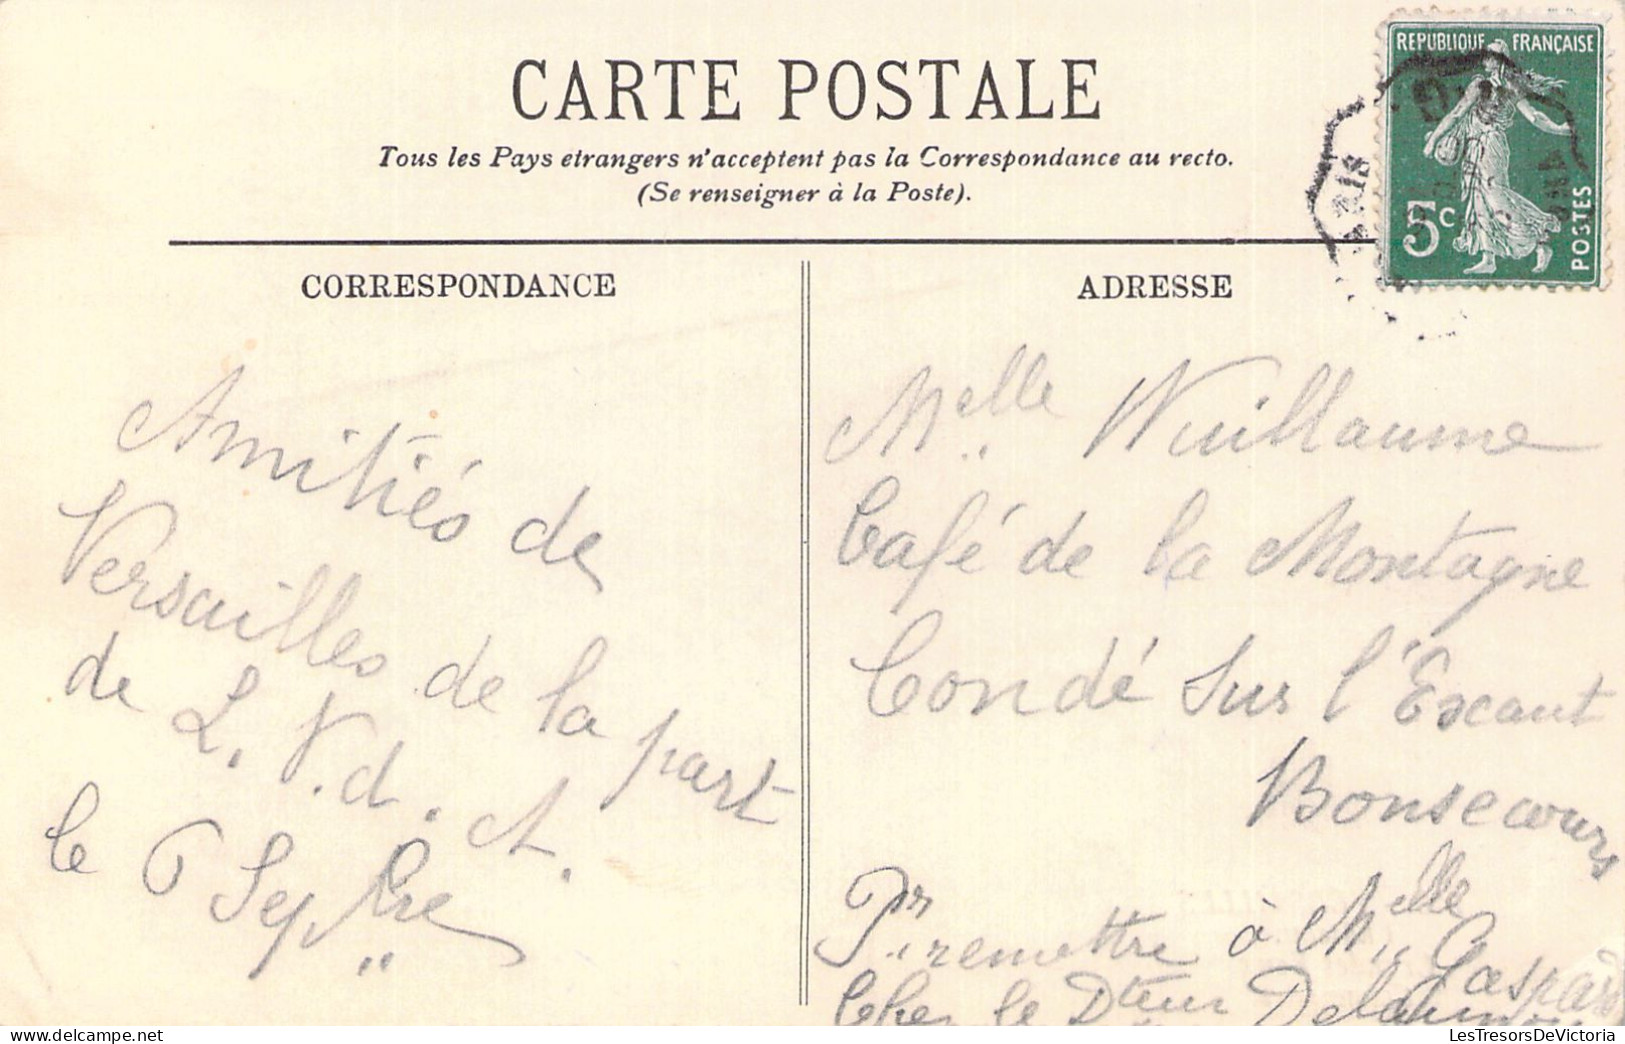 CARTE POSTALE
Tous les Pays etrangers n'acceptent pas la Correspondance au recto.
(Se renseigner à la Poste).
REPUBLIQUE FRANÇAISE
5c
POSTES
CORRESPONDANCE
Amitiés de
Versailles de la part
de L. V. d. A.
le 6 Septbre
ADRESSE
Melle Wuillaume
Café de la Montagne
Condé sur l'Escaut
Bonsecours
Pr remettre à Melle
Gaspard
Chez le Dteur
LesTresorsDeVictoria